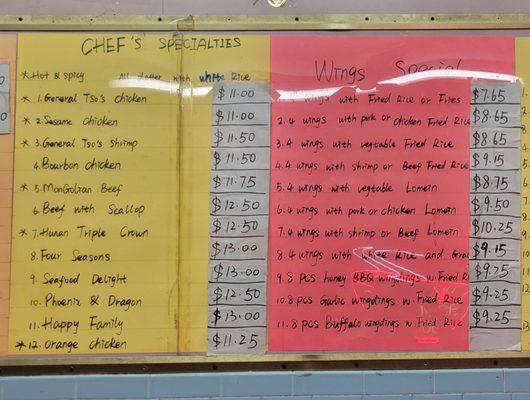 CHEF'S SPECIALTIES
* Hot & spicy All platter with white Rice
* 1. General Tso's chicken $11.00
* 2. Sesame chicken $11.00
* 3. General Tso's Shrimp $11.50
4. Bourbon chicken $11.50
* 5. MonGolian Beef $11.75
6. Beef with Scallop $12.50
* 7. Hunan Triple Crown $12.50
8. Four Seasons $13.00
9. Seafood Delight $13.00
10. Phoenix & Dragon $12.50
11. Happy Family $13.00
* 12. Orange chicken $11.25
Wings Special
wings with Fried Rice or Fries $7.65
2. 4 wings with pork or chicken Fried Rice $8.65
3. 4 wings with vegtable Fried Rice $8.65
4. 4 wings with shrimp or Beef Fried Rice $9.15
5. 4 wings with vegtable Lomein $8.75
6. 4 wings with pork or chicken Lomein $9.50
7. 4 wings with shrimp or Beef Lomein $10.25
8. 4 wings with white Rice and $9.15
9. 8 PCS honey BBQ wingdings w. Fried $9.25
10. 8 pcs Garlic wingdings w. Fried Rice $9.25
11. 8 pcs Buffalo wingdings w. Fried Rice $9.25